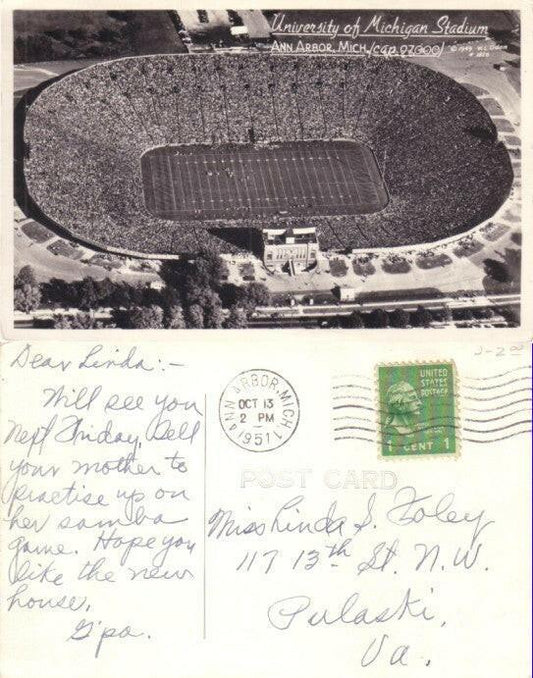 University of Michigan Stadium
Ann Arbor, Mich. (cap. 97,000)
© 1949 W.L.
Dear Linda:-
Will see you
Next Friday, Tell
your mother to
practise up on
her samba
game. Hope you
like the new
house.
G'pa.
ANN ARBOR, MICH.
OCT 13
2 PM
1951
UNITED
STATES
POSTAGE
1 CENT 1
POST CARD
Miss Linda S. Foley
117 13th St. N.W.
Pulaski,
Va.